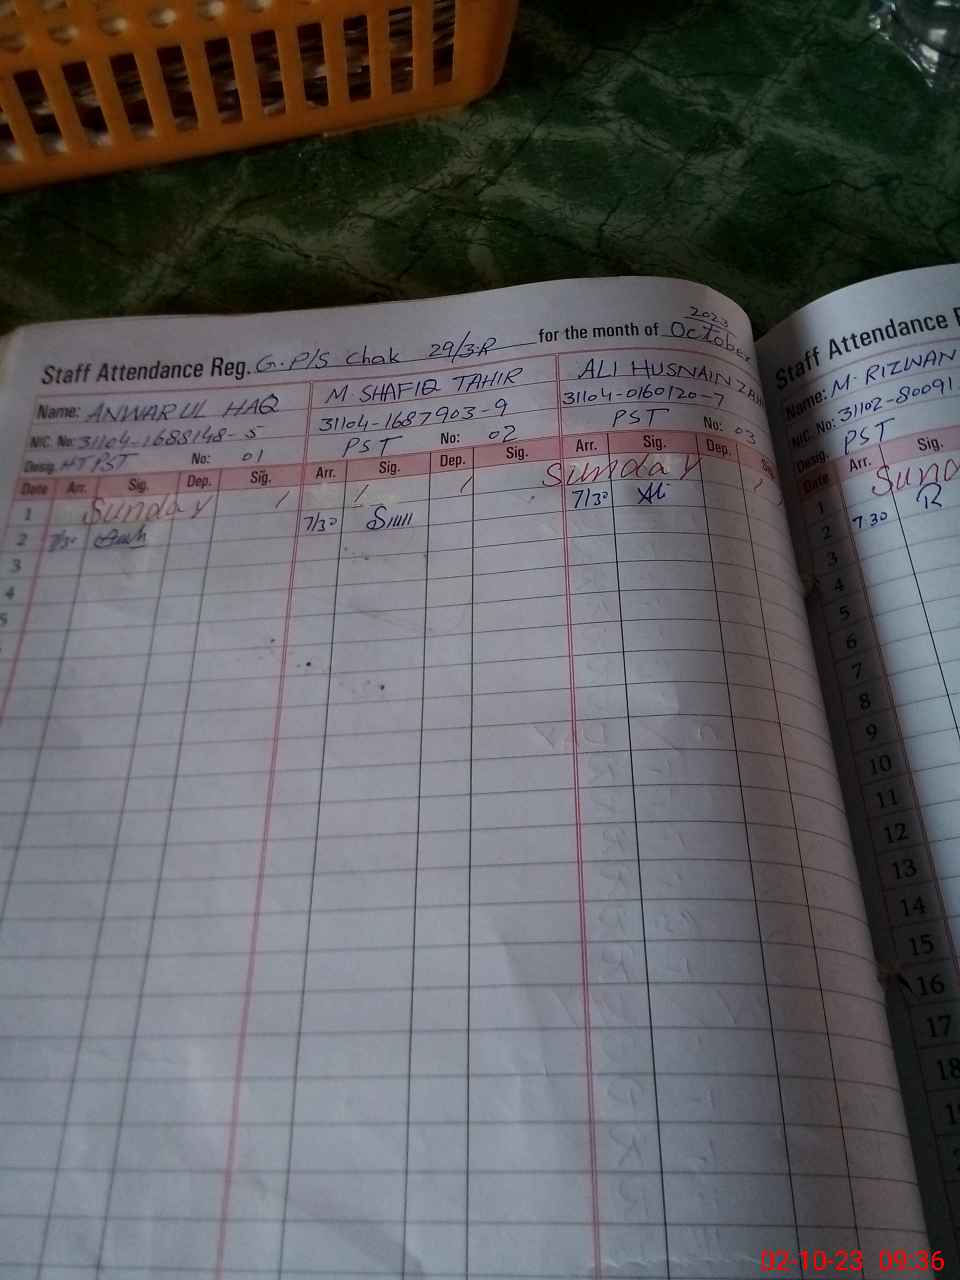 2023
Staff Attendance Reg. G. P/S Chak 29/3.R for the month of October
Name: ANWAR UL HAQ M SHAFIQ TAHIR ALI HUSNAIN
NIC. No: 31104-1688148-5 31104-1687903-9 31104-0160120-7
Desig. HT PST No: 01 PST No: 02 PST No: 03
Date Arr. Sig. Dep. Sig. Arr. Sig. Dep. Sig. Arr. Sig. Dep.
1 Sunday Sunday
2 7/30 7/30 7/30
3
4
5
Staff Attendance
Name: M. RIZWAN
NIC. No: 31102-80091
Desig. PST
Date Arr. Sig.
1
2 7.30 R
3
4
5
6
7
8
9
10
11
12
13
14
15
16
17
18
02-10-23 09:36